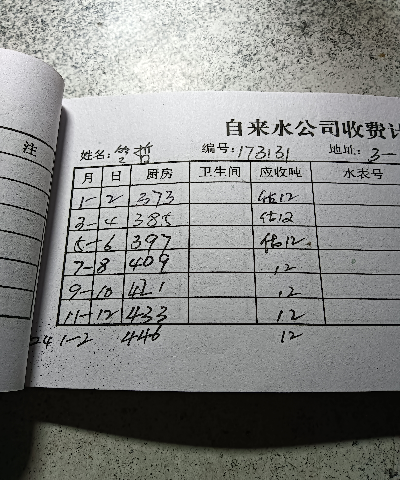 注
自来水公司收费计
姓名: 哲 编号:173131 地址: 3-
月 日 厨房 卫生间 应收吨 水表号
1-2 373 估12
3-4 385 估12
5-6 397 估12.
7-8 409 .12
9-10 421 .12
11-12 433 12
24 1-2 446 12